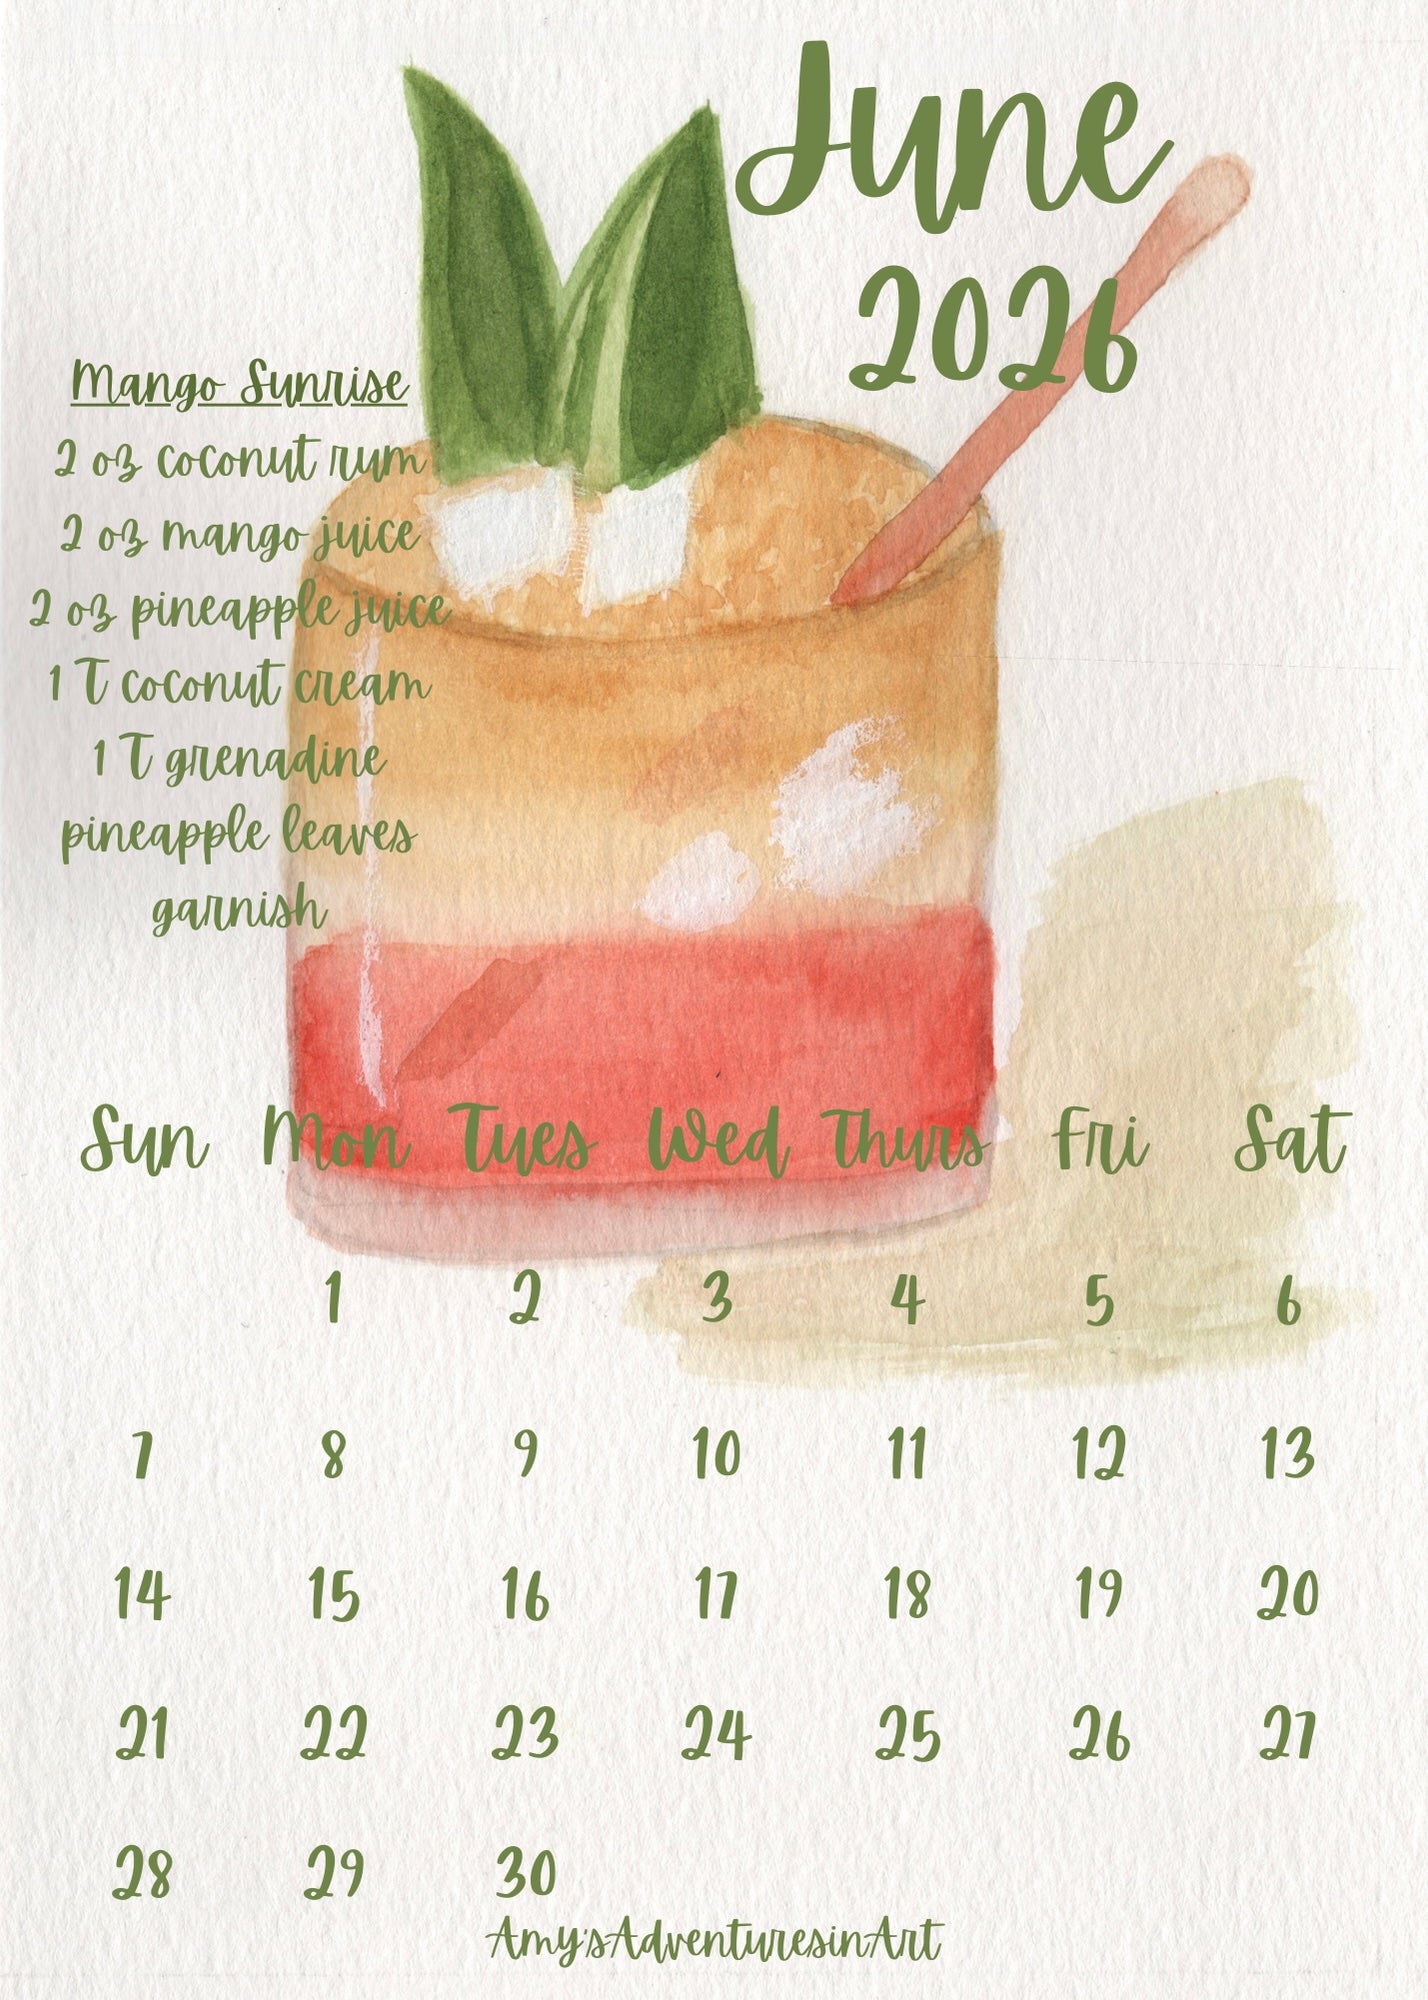 June
2026
Mango Sunrise
2 oz coconut rum
2 oz mango juice
2 oz pineapple juice
1 T coconut cream
1 T grenadine
pineapple leaves
garnish
Sun Mon Tues Wed Thurs Fri Sat
1 2 3 4 5 6
7 8 9 10 11 12 13
14 15 16 17 18 19 20
21 22 23 24 25 26 27
28 29 30
Amy'sAdventuresinArt